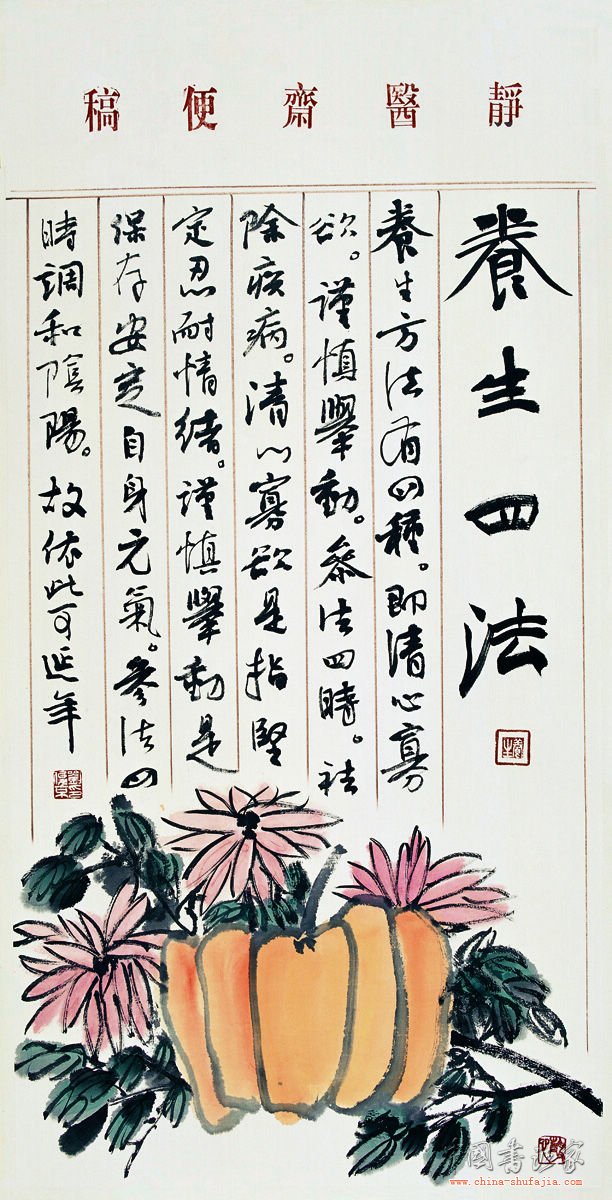 靜醫齋便稿
養生四法
養生方法有四種。即清心寡
欲。謹慎舉動。參法四時。祛
除疾病。清心寡欲是指堅
定忍耐情緒。謹慎舉動是
保存安定自身元氣。參法四
時調和陰陽。故依此可延年
www.china-shufajia.com